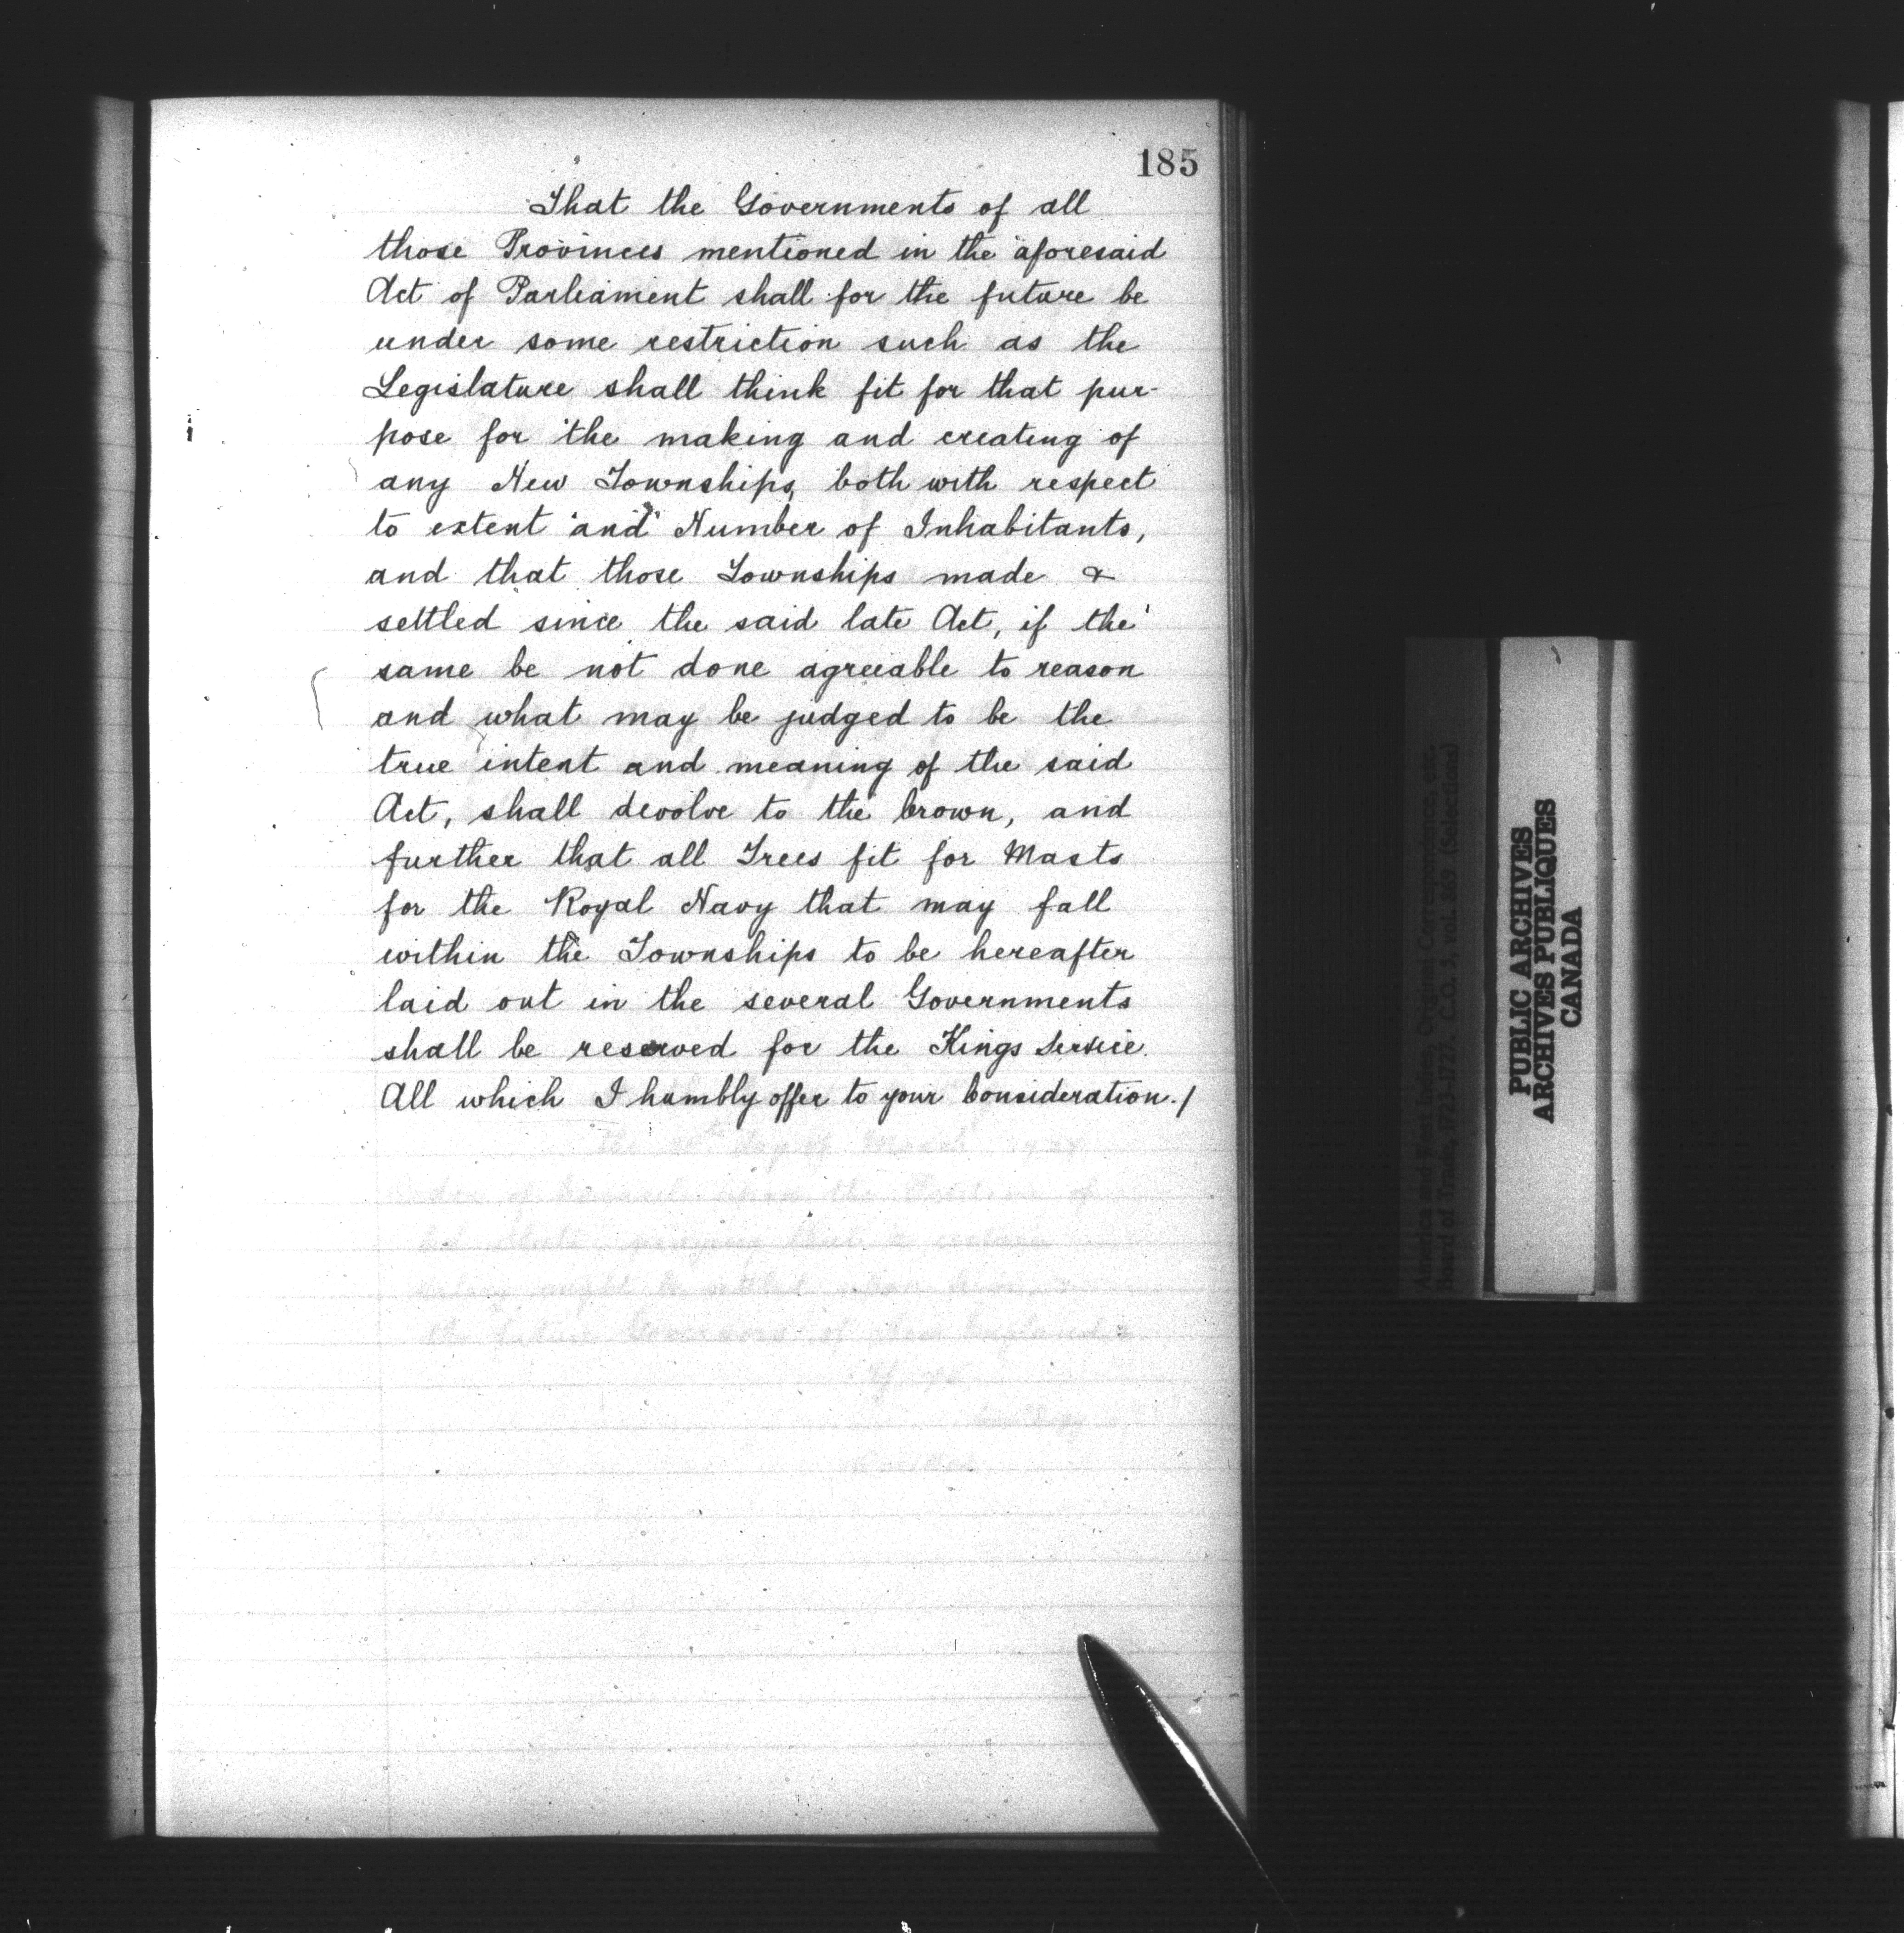 185
That the Governments of all
those Provinces mentioned in the aforesaid
Act of Parliament shall for the future be
under some restriction such as the
Legislature shall think fit for that pur-
pose for the making and creating of
any New Townships, both with respect
to extent and Number of Inhabitants,
and that those Townships made &
settled since the said late Act, if the
same be not done agreeable to reason
and what may be judged to be the
true intent and meaning of the said
Act, shall devolve to the Crown, and
further that all Trees fit for Masts
for the Royal Navy that may fall
within the Townships to be hereafter
laid out in the several Governments
shall be reserved for the Kings Service.
All which I humbly offer to your Consideration./
America and West Indies, Original Correspondence, etc.
Board of Trade, 1723-1727. C.O. 5, vol. 869 (Selections)
PUBLIC ARCHIVES
ARCHIVES PUBLIQUES
CANADA